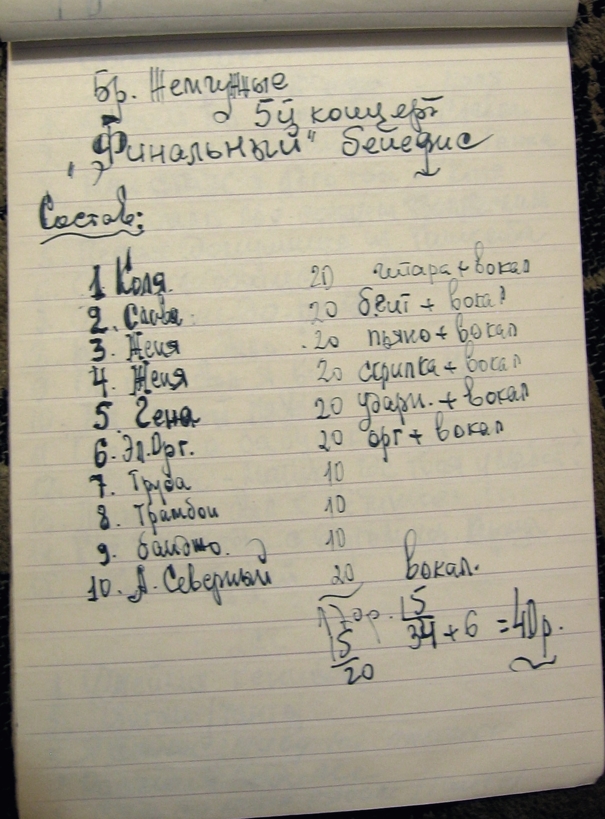 Бр. Жемчужные
5й концерт
"Финальный"
Состав:
1 Коля. 20 гитара + вокал
2. Слава. 20 + вокал
3. Женя 20 пьяно + вокал
4. Женя 20 скрипка + вокал
5. Гена 20 ударн. + вокал
6. Эл.Орг. 20 орг + вокал
7. Труба 10
8. Трамбон 10
9. банджо. 10
10. А. Северный 20 вокал.
5
34 + 6 = 40р.
5
20